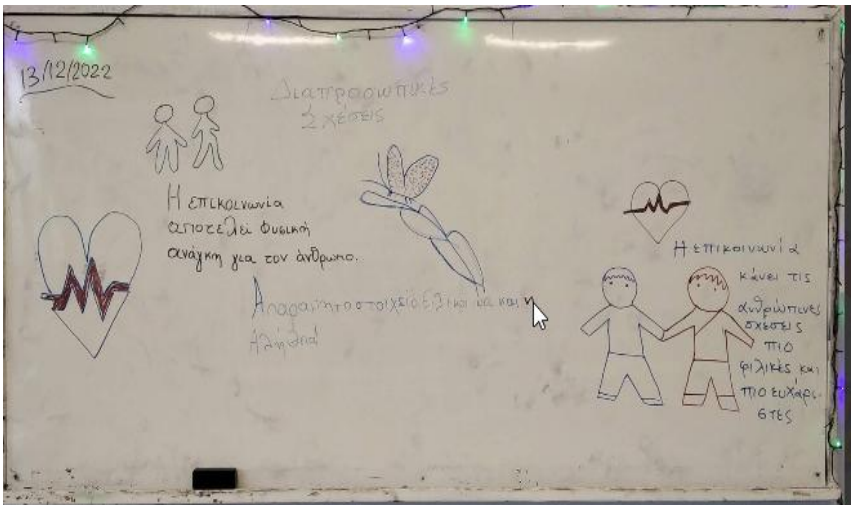 13/12/2022
Διαπροσωπικές
Σχέσεις
Η επικοινωνία
αποτελεί φυσική
ανάγκη για τον άνθρωπο.
στοιχείο είναι και η
Αλήθεια!
Η επικοινωνία
κάνει τις
ανθρώπινες
σχέσεις
πιο
φιλικές και
πιο ευχάρι-
στες